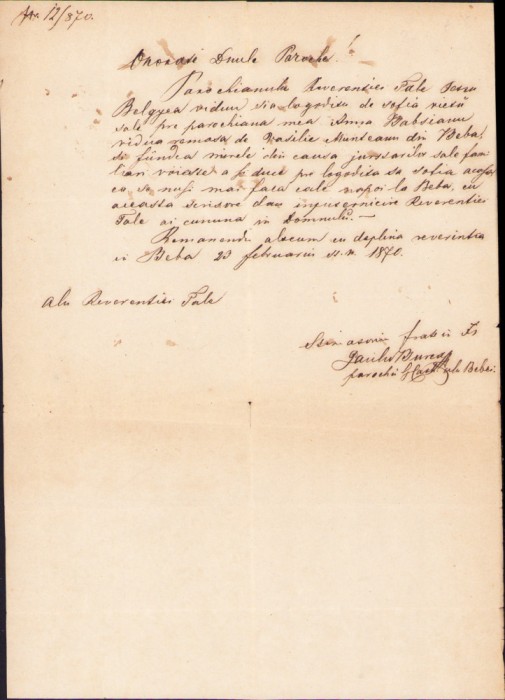 Nr. 12/870.
Onorate Dnule Paroche!
Parochianulu Reverentiei Tale
Belgyea viduu s'ia logoditu de sofia
sale pre parochiana mea Anna Babsianu
vidua remasa de Vasilie Munteanu din Beba,
si fiindca mirele din causa sale
voiasce a si duce pre logodita sa sofia acasa
ca sa nu'si mai faca cale napoi la Beba, cu
aceasta scrisore dau Reverentiei
Tale ai cununa in Domnulu. —
Remanendu alucum cu deplina reverintia
in Beba 23 februariu s. n. 1870.
Alu Reverentiei Tale
frate in Xs
parochu gr. cath. alu Bebei